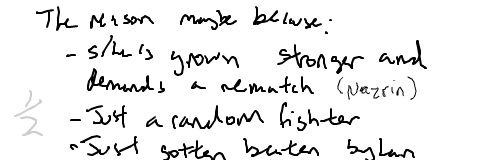 The reason maybe because:
- s/he's grown stronger and
demands a rematch (Nazrin)
- Just a random fighter
1/2
- Just gotten beaten by